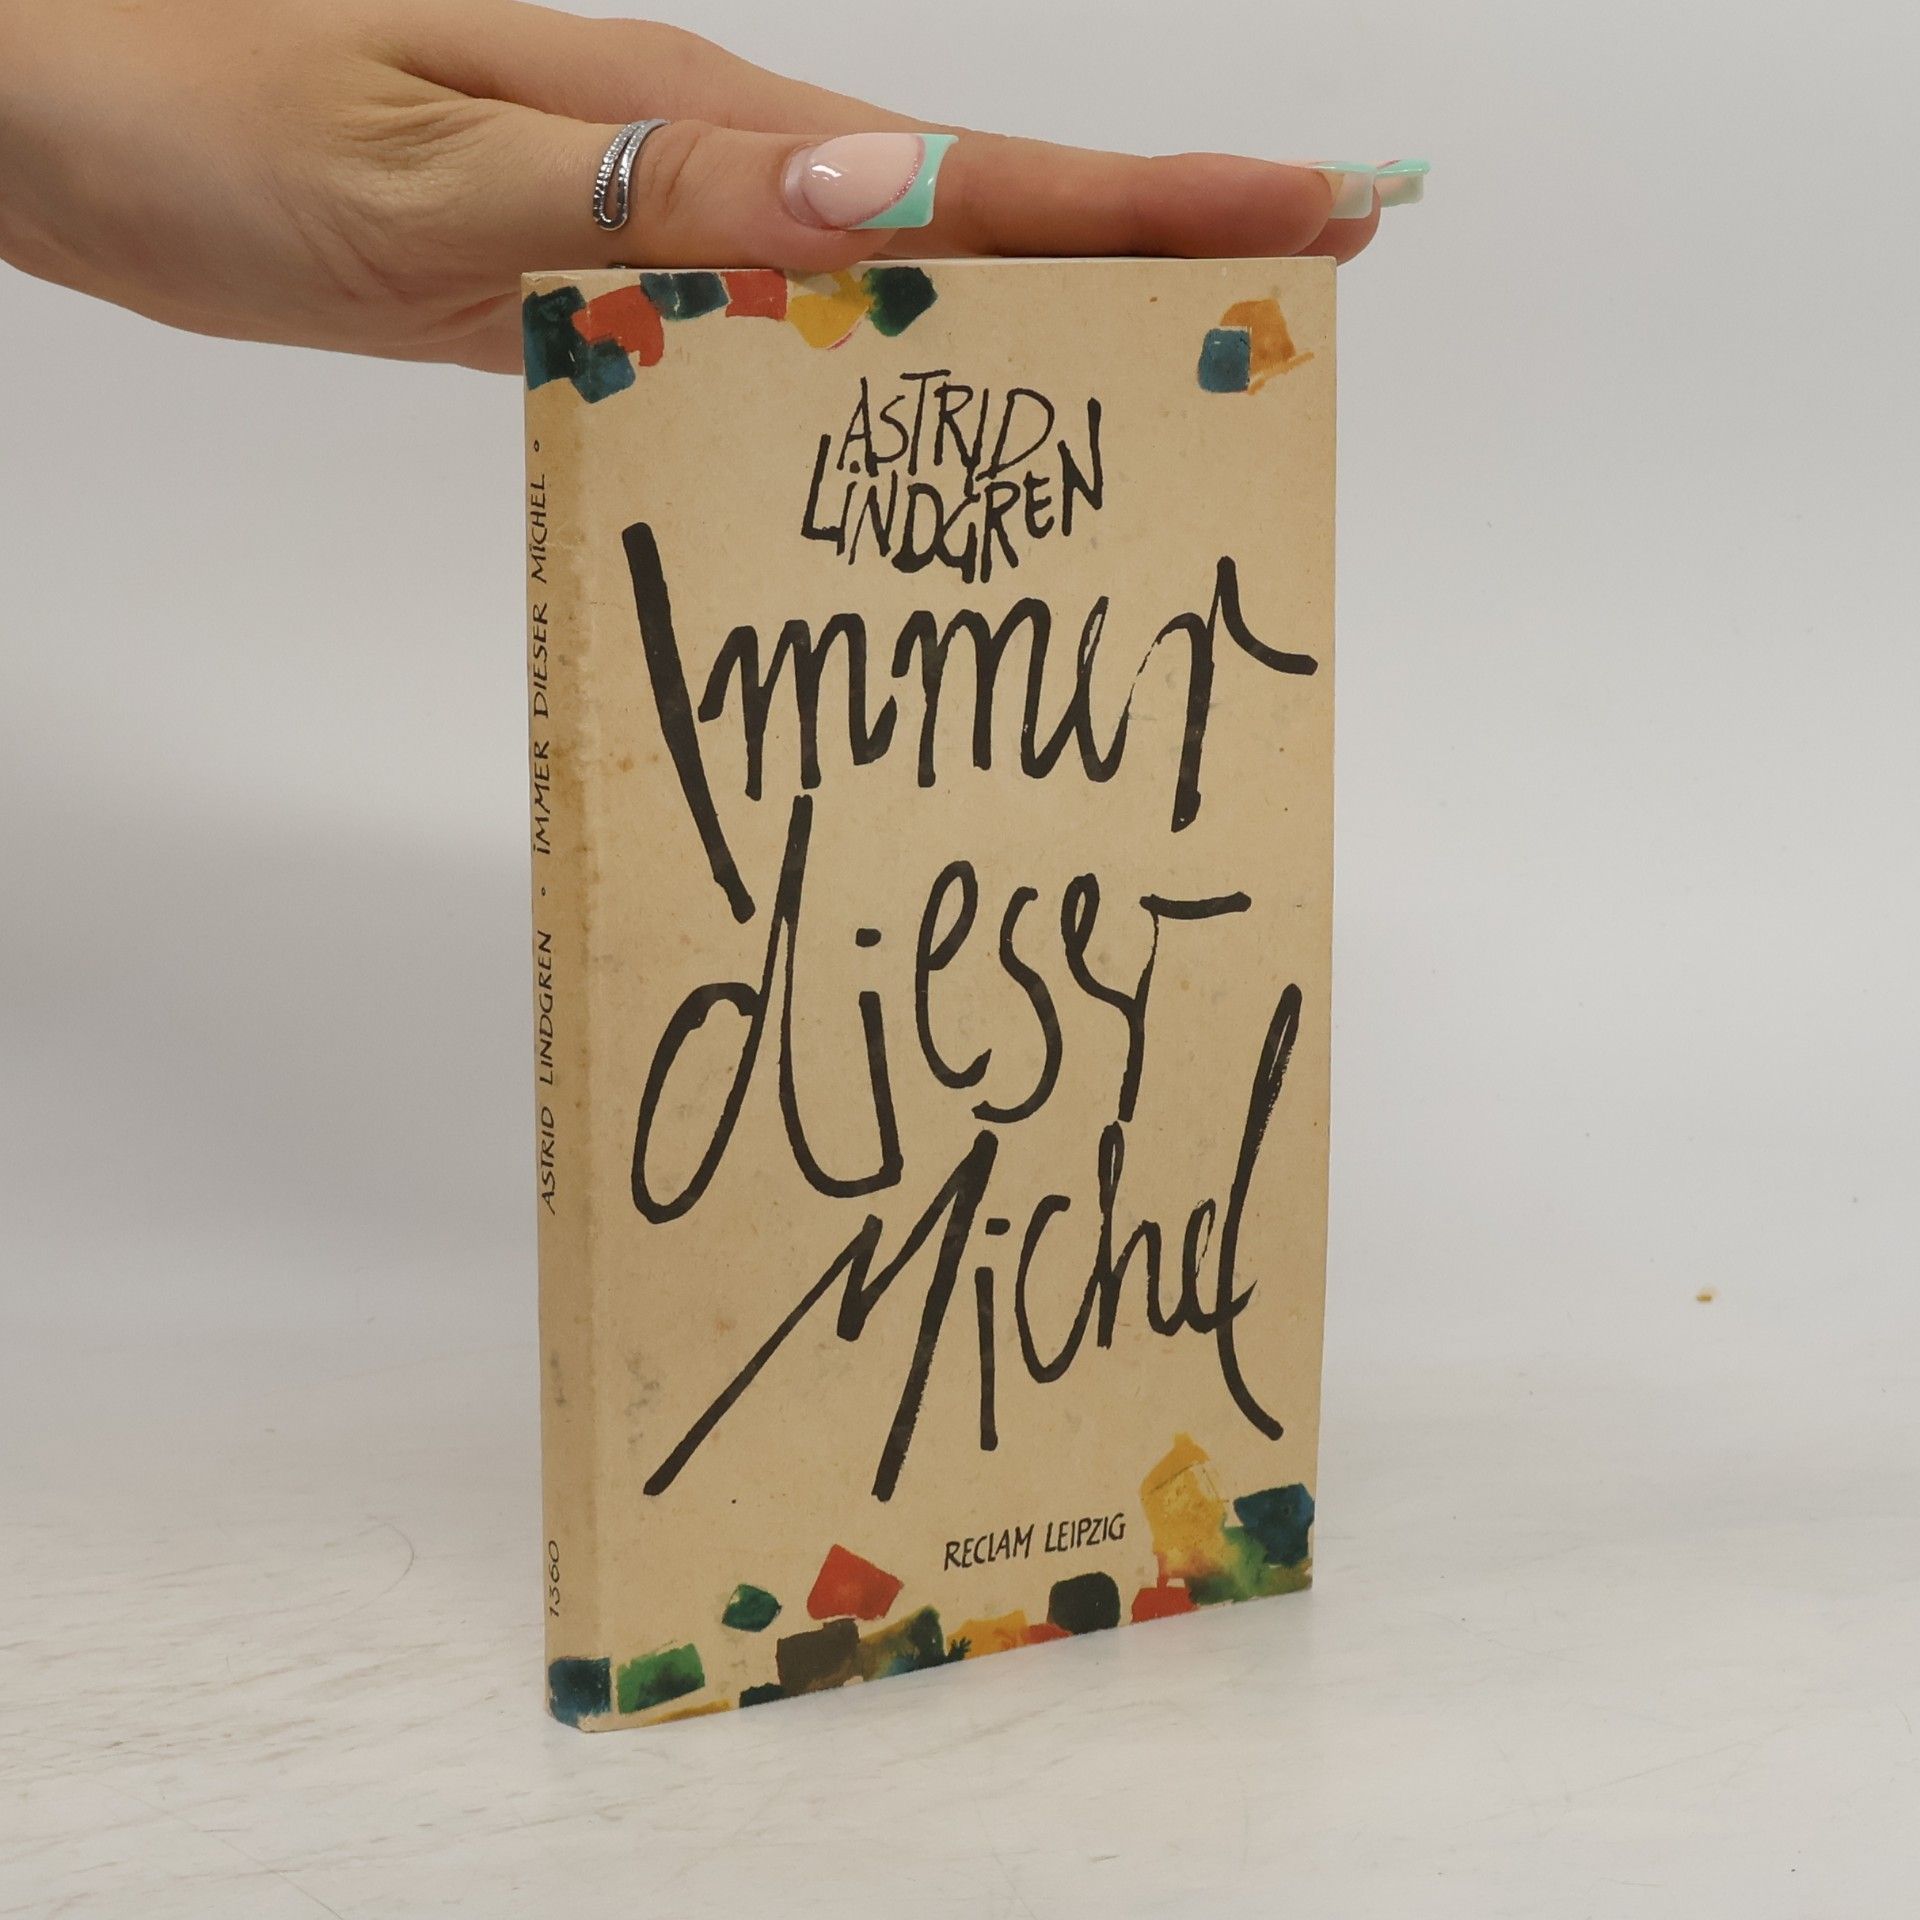 ASTRID
LINDGREN
Immer
dieser
Michel
RECLAM LEIPZIG
ASTRID LINDGREN ∘ IMMER DIESER MICHEL ∘
1360